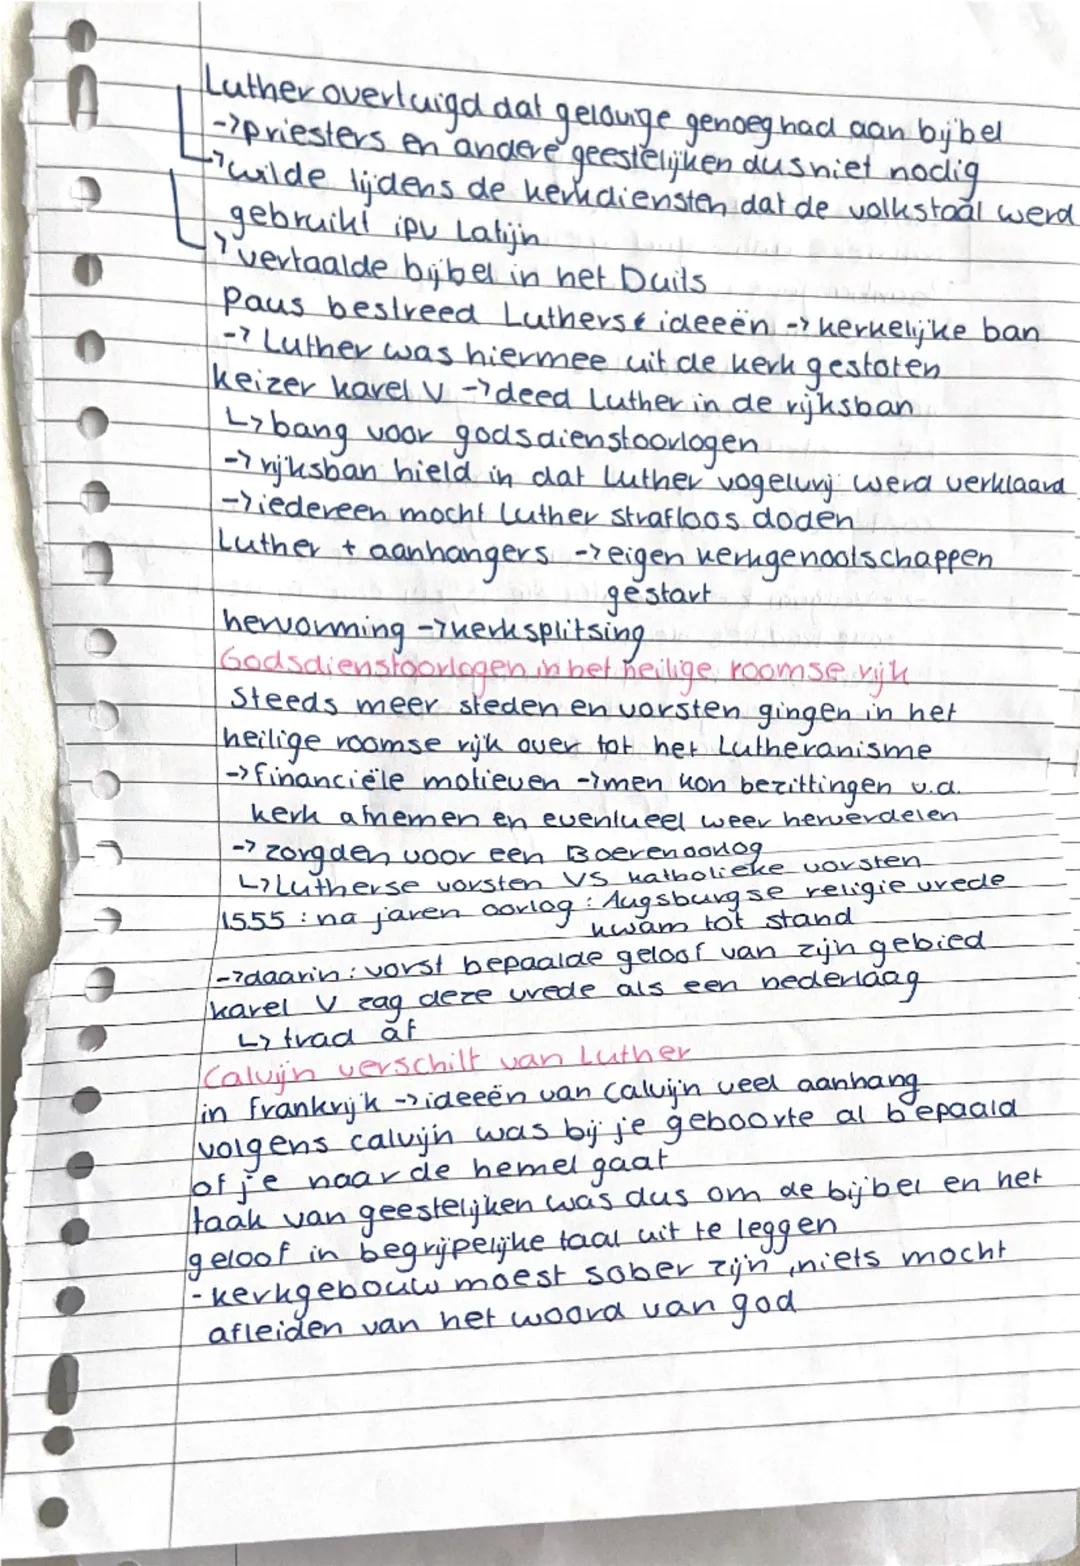 Luther overtuigd dat gelovige genoeg had aan bijbel
->priesters en andere geestelijken dus niet nodig
->wilde tijdens de kerkdiensten dat de volkstaal werd
gebruikt ipv Latijn
->vertaalde bijbel in het Duits
Paus bestreed Luthers ideeën -> kerkelijke ban
-> Luther was hiermee uit de kerk gestoten
keizer karel V -> deed Luther in de rijksban
↳ bang voor godsdienstoorlogen
-> rijksban hield in dat Luther vogelvrij werd verklaard
-> iedereen mocht Luther strafloos doden
Luther + aanhangers -> eigen kerkgenootschappen
gestart
hervorming -> kerksplitsing
Godsdienstoorlogen in het heilige roomse rijk
Steeds meer steden en vorsten gingen in het
heilige roomse rijk over tot het Lutheranisme
-> financiële motieven -> men kon bezittingen v.d.
kerk afnemen en eventueel weer herverdelen
-> zorgden voor een Boerenoorlog
↳ Lutherse vorsten VS katholieke vorsten
1555 : na jaren oorlog : Augsburgse religievrede
kwam tot stand
-> daarin : vorst bepaalde geloof van zijn gebied
karel V zag deze vrede als een nederlaag
↳ trad af
Calvijn verschilt van Luther
in frankrijk -> ideeën van Calvijn veel aanhang
volgens calvijn was bij je geboorte al bepaald
of je naar de hemel gaat
taak van geestelijken was dus om de bijbel en het
geloof in begrijpelijke taal uit te leggen
- kerkgebouw moest sober zijn, niets mocht
afleiden van het woord van god